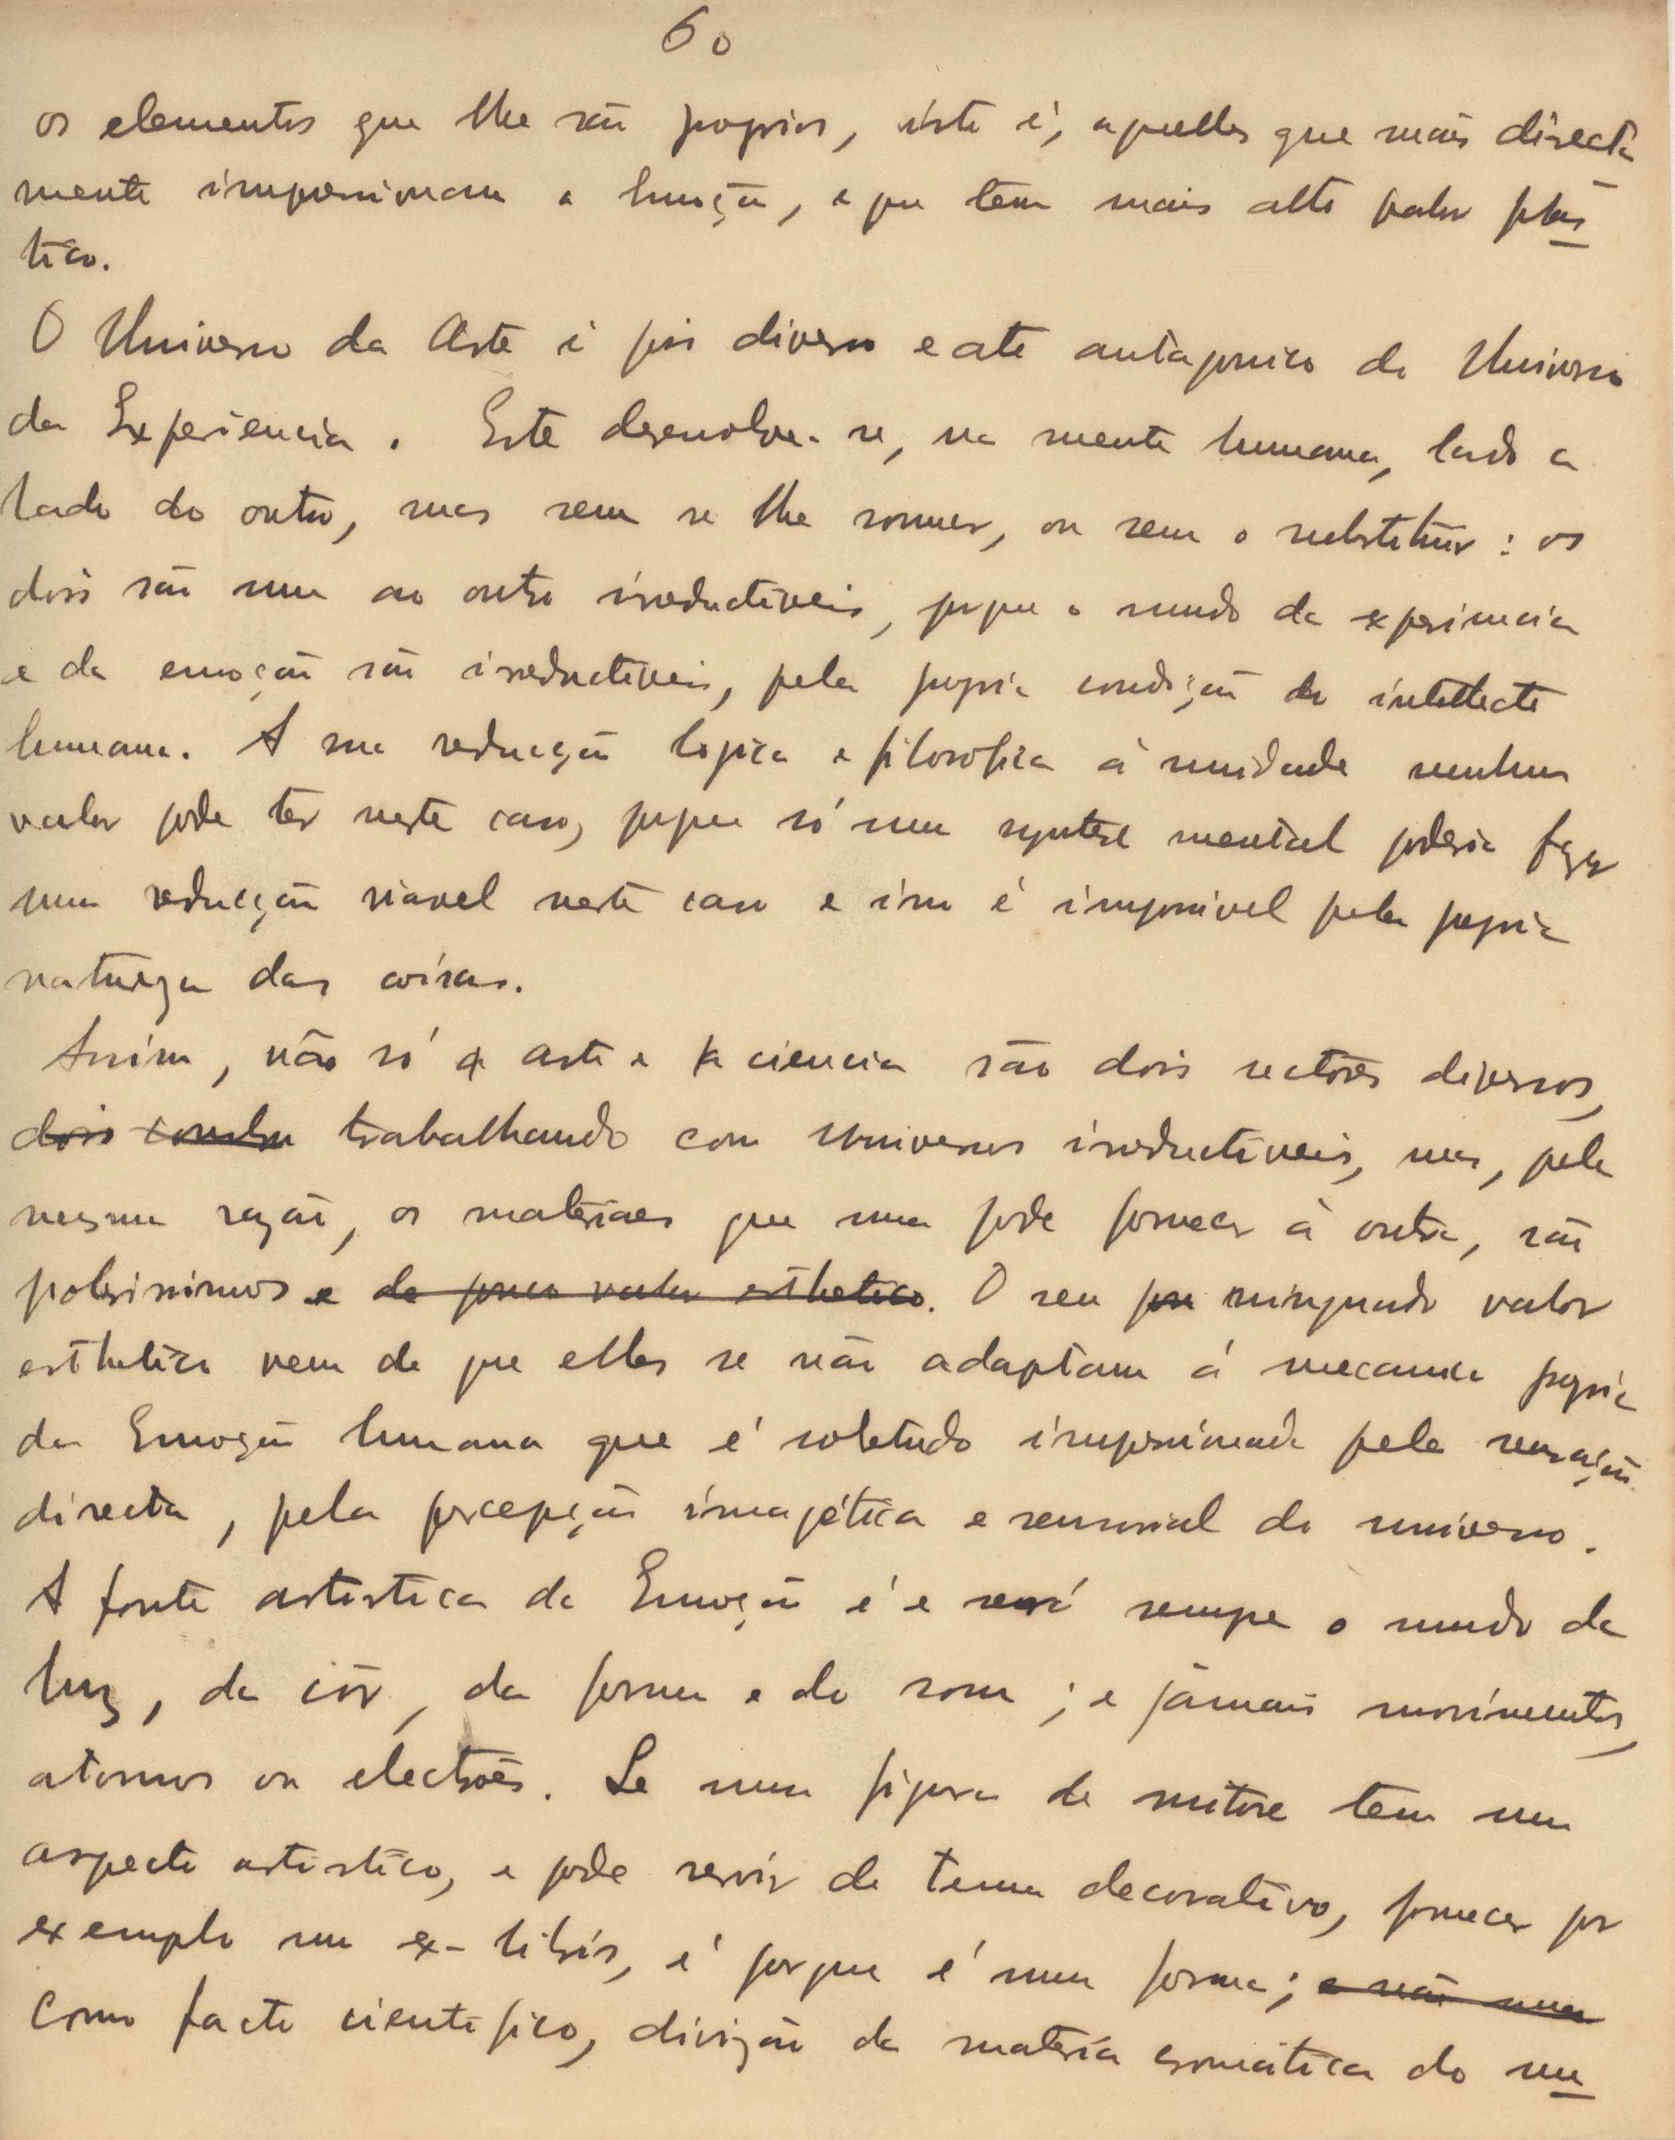 60
os elementos que lhe são proprios, isto é, aquelles que mais directa
mente impressionam a Emoção, e que têm mais alto valor plas
tico.
O Universo da Arte é pois diverso e até antagonico do Universo
da Experiencia. Este desenvolve-se, na mente humana, lado a
lado do outro, mas sem se lhe sommar, ou sem o substituir: os
dois são um ao outro irreductiveis, porque o mundo da experiencia
e da emoção são irreductiveis, pela propria condição do intellecto
humano. A sua reducção logica e filosofica á unidade nenhum
valor pode ter neste caso, porque só uma syntese mental poderia fazer
uma reducção viavel neste caso e isso é impossivel pela propria
natureza das coisas.
Assim, não só a arte e a ciencia são dois sectores diversos,
dois trabalhando com Universos irreductiveis, mas, pela
mesma razão, os materiaes que uma pode fornecer á outra, são
pobrissimos e de pouco valor esthetico. O seu minguado valor
esthetico vem de que elles se não adaptam á mecanica propria
da Emoção humana que é sobretudo impressionada pela sensação
directa, pela percepção imagética e sensorial do universo.
A fonte artistica da Emoção é e será sempre o mundo da
luz, da côr, da forma e do som; e jámais movimentos,
atomos ou electrões. Se uma figura de mitose tem um
aspecto artistico, e pode servir de tema decorativo, fornecer por
exemplo um ex-libris, é porque é uma forma; e não uma
Como facto cientifico, divizão da materia cromática do nu